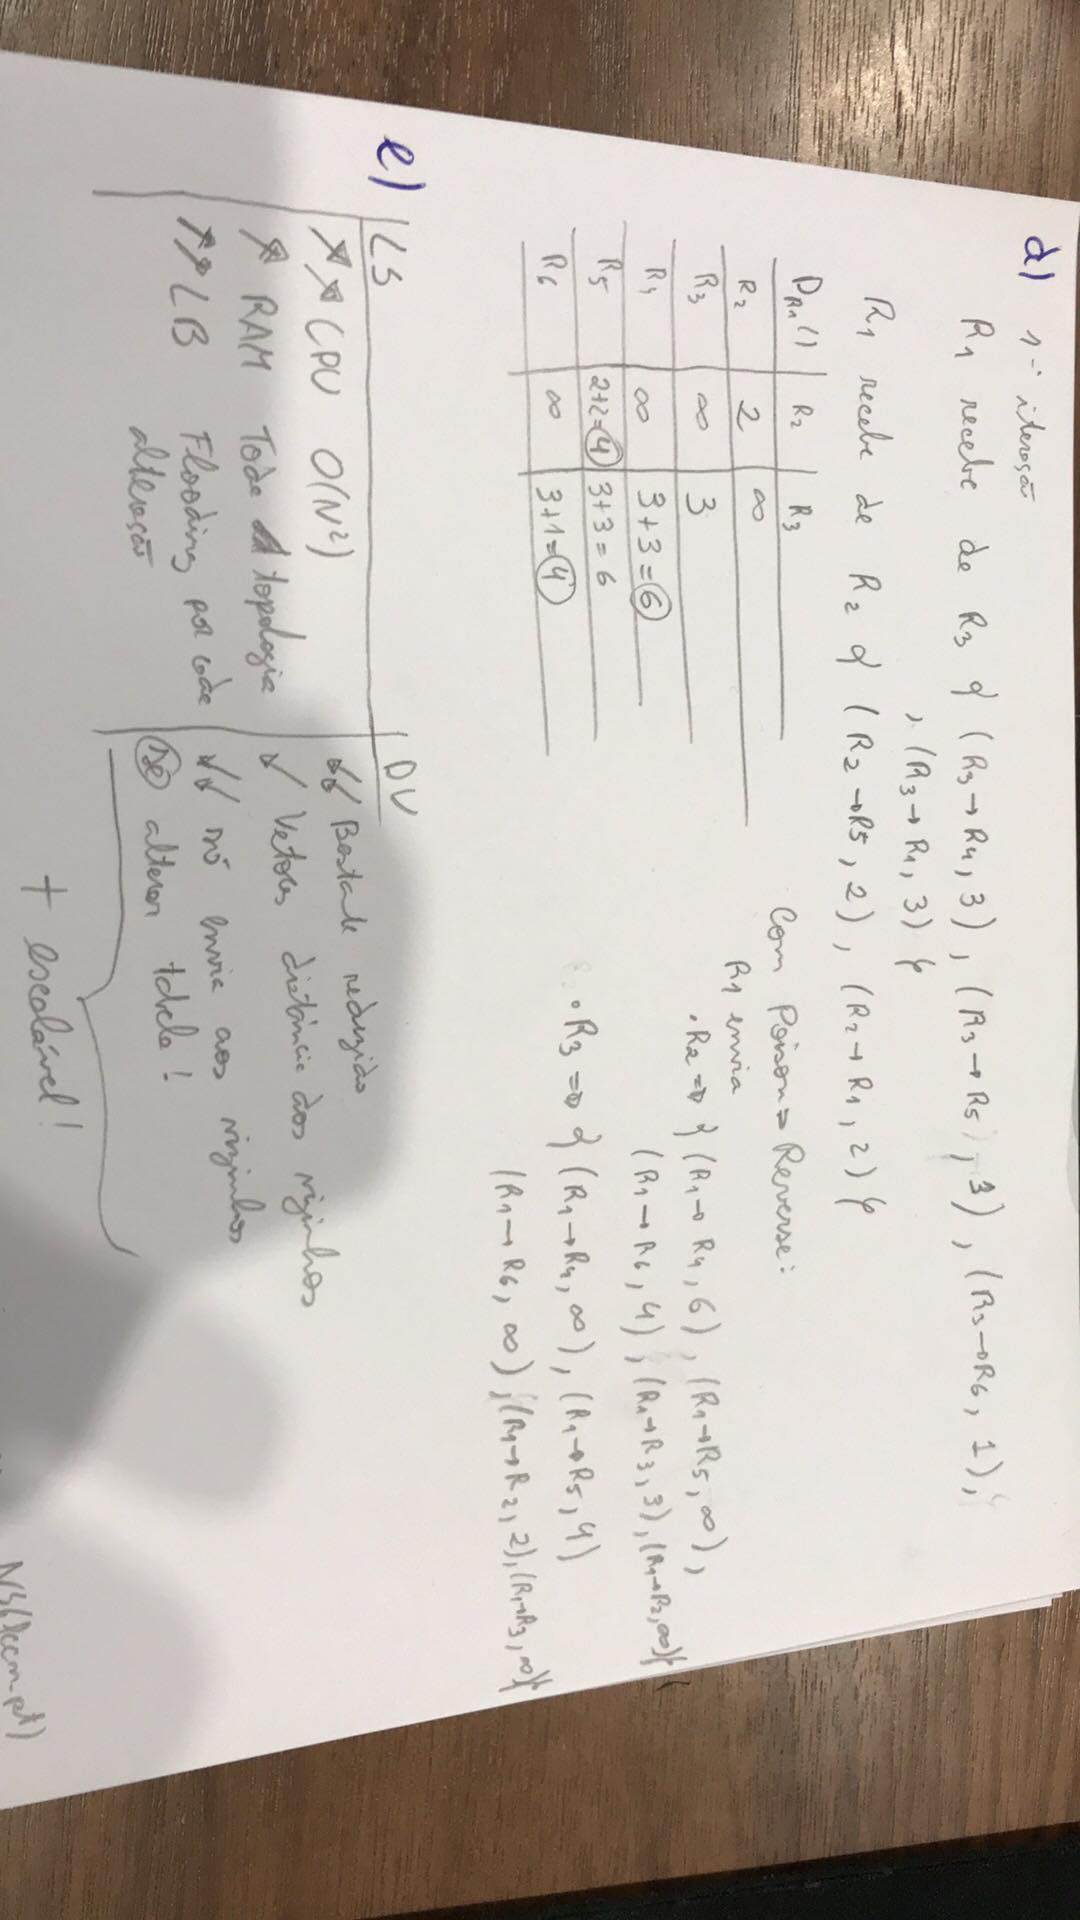 d) 1ª iteração
R1 recebe de R3 { (R3→R4, 3), (R3→R5, 3), (R3→R6, 1),
, (R3→R1, 3) }
R1 recebe de R2 { (R2→R5, 2), (R2→R1, 2) }
DR1() | R2 | R3
R2 | 2 | ∞
R3 | ∞ | 3
R4 | ∞ | 3+3=6
R5 | 2+2=4 | 3+3=6
R6 | ∞ | 3+1=4
Com Poison Reverse:
R1 envia
• R2 => { (R1→R4, 6), (R1→R5, ∞),
(R1→R6, 4), (R1→R3, 3), (R1→R2, ∞) }
• R3 => { (R1→R4, ∞), (R1→R5, 4)
(R1→R6, ∞), (R1→R2, 2), (R1→R3, ∞) }
e) LS | DV
↗↗ CPU O(N²) | ↙↙ Bastante reduzido
↗ RAM Toda topologia | ↙ Vetores distância dos vizinhos
↗↗ LB Flooding por cada | ↙↙ só envia aos vizinhos
alteração | se alterar tabela!
+ escalável!